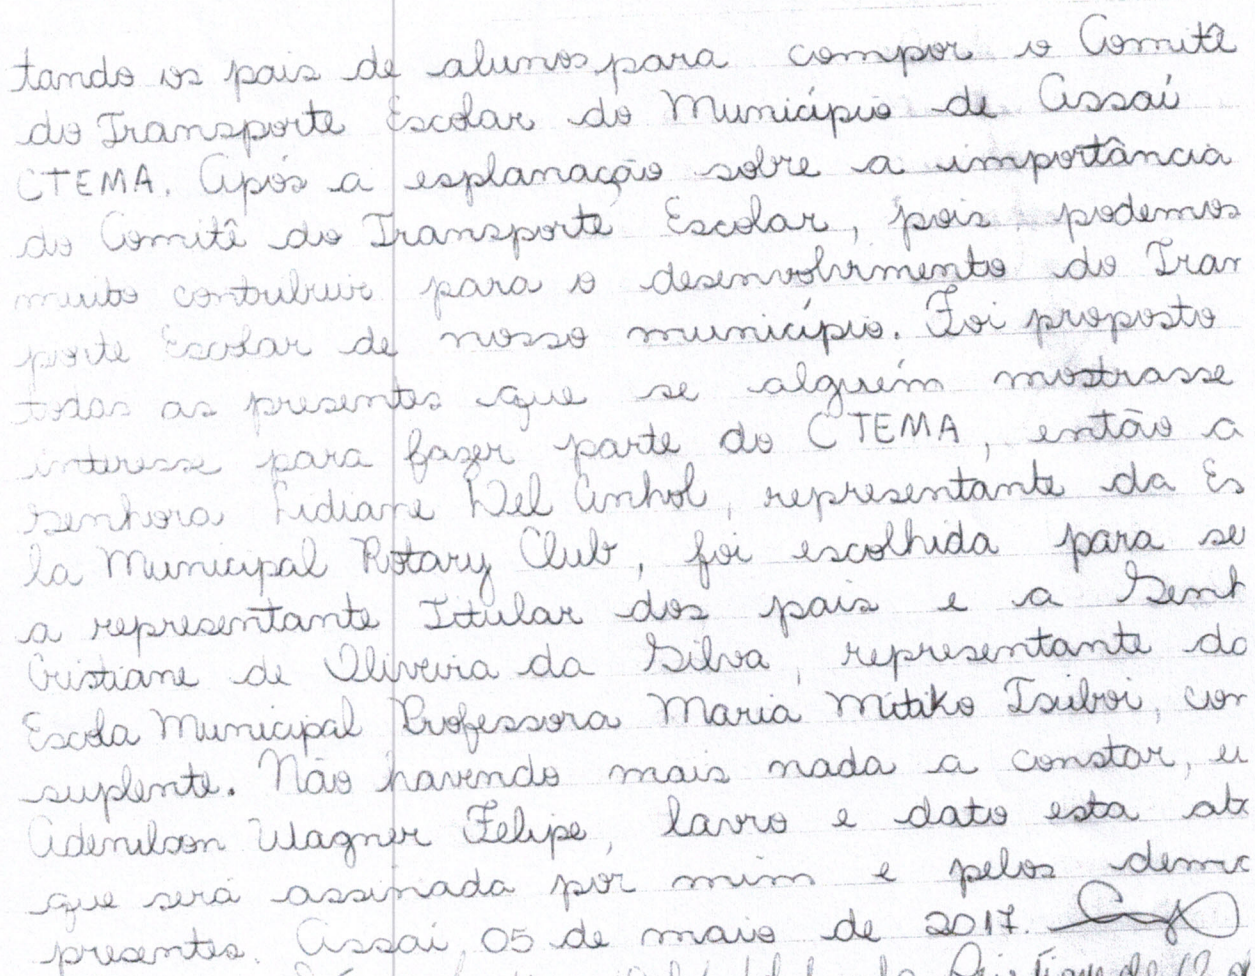 tando os pais de alunos para compor o Comitê
do Transporte Escolar do Município de Assaí
CTEMA. Após a esplanação sobre a importância
do Comitê do Transporte Escolar, pois podemos
muito contribuir para o desenvolvimento do Tran
porte Escolar de nosso município. Foi proposto
todas as presentes que se alguém mostrasse
interesse para fazer parte do CTEMA, então a
senhora Lidiane Del Anhol, representante da Es
la Municipal Rotary Club, foi escolhida para se
a representante Titular dos pais e a Senh
Cristiane de Oliveira da Silva, representante da
Escola Municipal Professora Maria Mitiko Tsuboi, com
suplente. Não havendo mais nada a constar, eu
Adenilson Wagner Felipe, lavro e dato esta ata
que será assinada por mim e pelos dema
presentes. Assaí, 05 de maio de 2017.